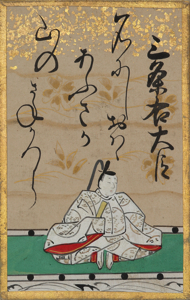 三条右大臣
名にしおはゝ
あふさか
山の
さねかつら